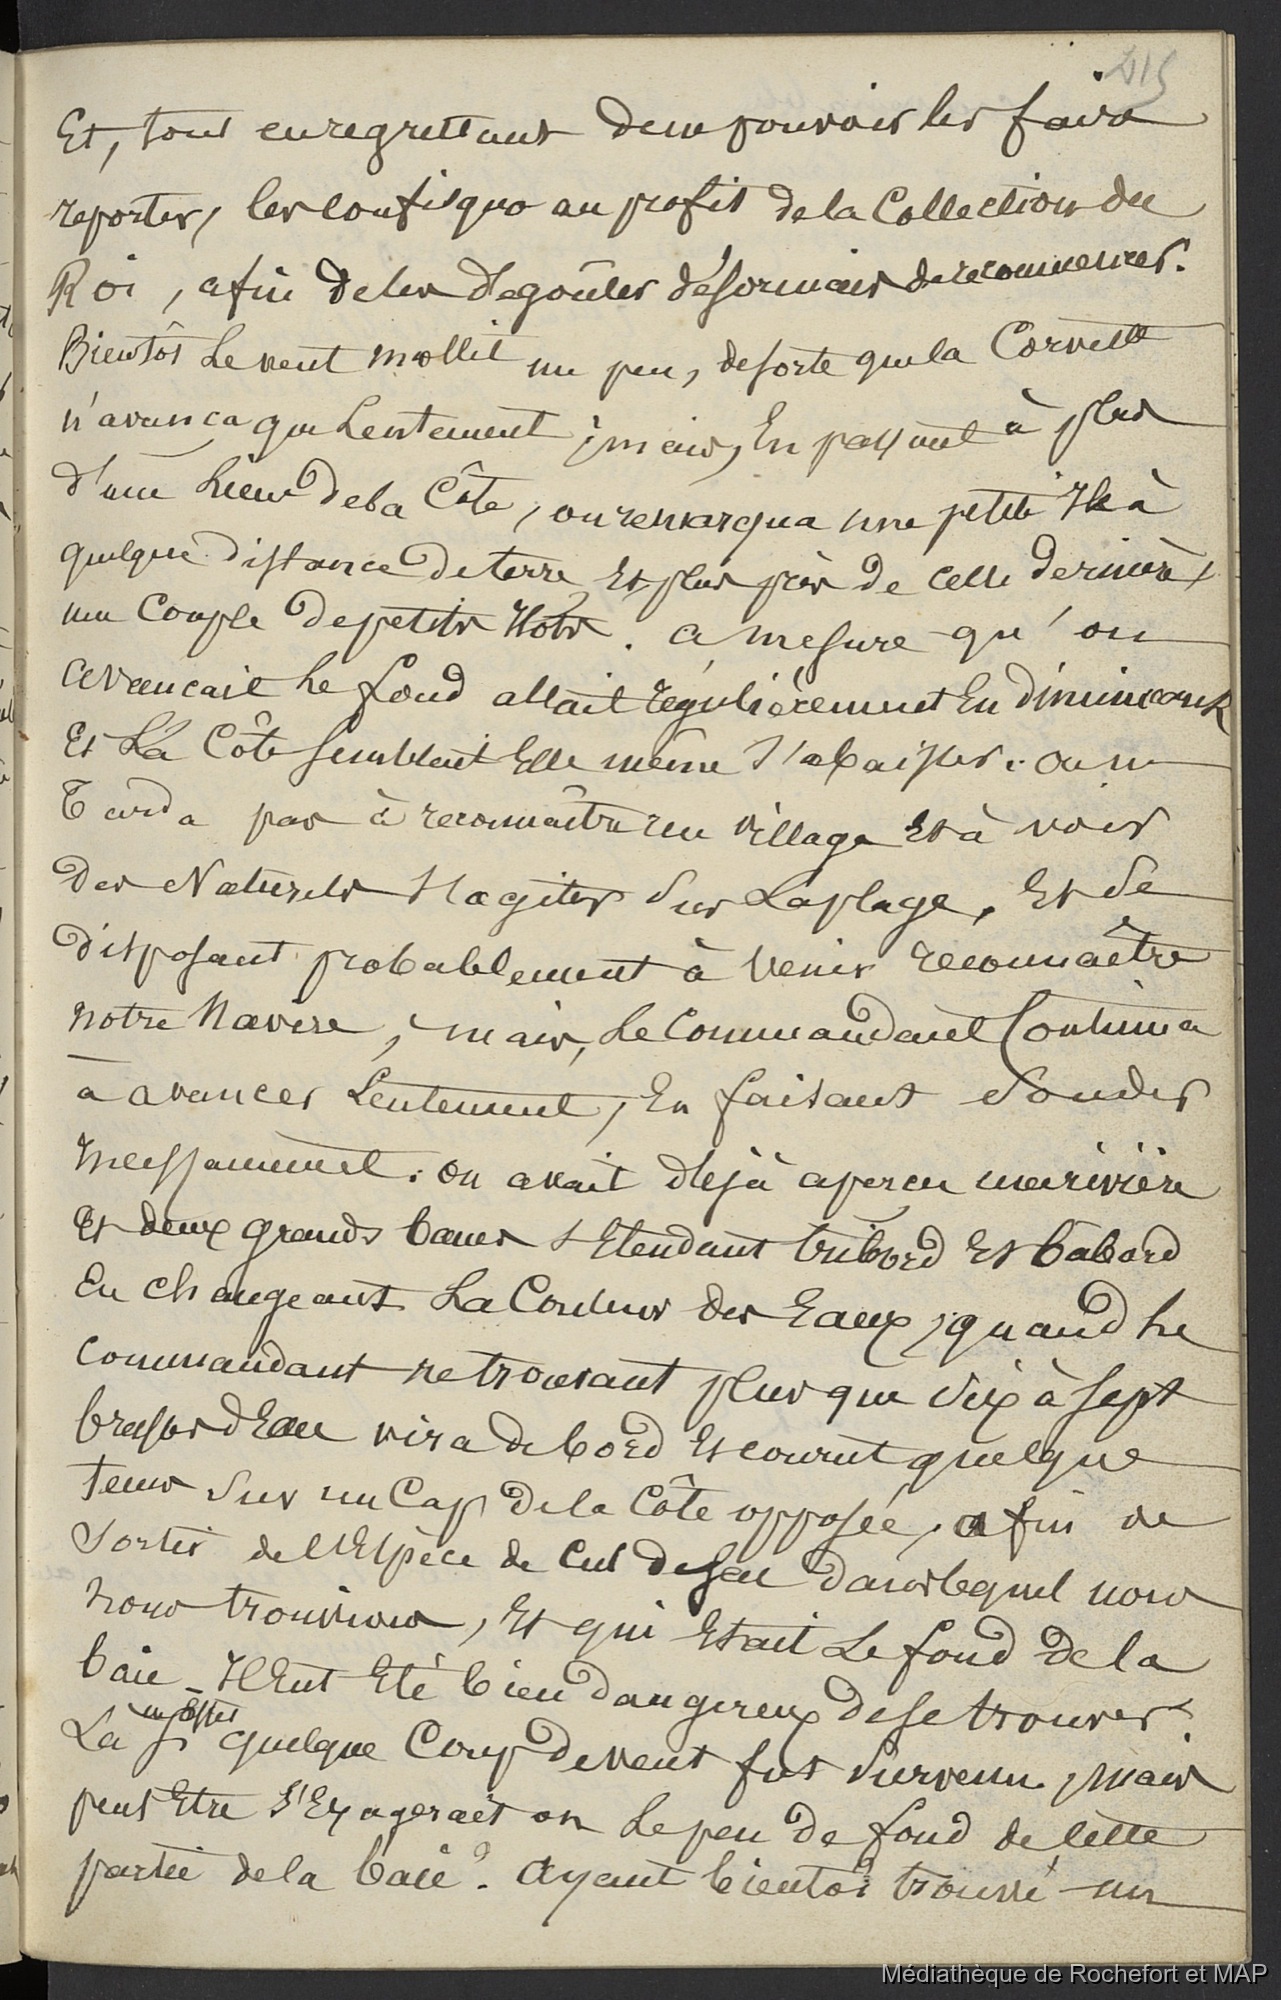 215
Et, tout en regrettant de ne pouvoir les faire
reporter, les confisqua au profit de la Collection du
Roi, afin de les dégoûter désormais de recommencer.
Bientôt le vent mollit un peu, de sorte que la Corvette
n'avança que lentement ; mais, En passant à plus
d'une Lieue de la Côte, on remarqua une petite Ile à
quelque distance de terre Et plus près de cette dernière,
un Couple de petits Ilots. a mesure qu'on
avancait le fond allait régulièrement En diminuant
Et La Côte semblait Elle même s'abaisser. on ne
Tarda pas à reconnaître un village Et à voir
des Naturels s'agiter sur La plage, Et se
disposant probablement à venir reconnaître
notre Navire, mais, le Commandant Continua
à avancer Lentement, En faisant sonder
incessamment. on avait déjà aperçu une rivière
Et deux grands bancs s'Etendant tribord Et bâbord
En changeant La Couleur des Eaux, quand le
commandant ne trouvant plus que six à sept
brasses d'Eau vira de bord Et courut quelque
tems sur un Cap de la Côte opposée, afin de
sortir de l'Espèce de Cul de sac dans lequel nous
nous trouvions, Et qui Etait Le fond de la
baie. Il Eut Eté bien dangereux de se trouver.
Là si quelque Coup de vent fut survenu, mais
peut Etre s'Exagerait on le peu de fond de cette
partie de la baie. Ayant bientôt trouvé un
Médiathèque de Rochefort et MAP